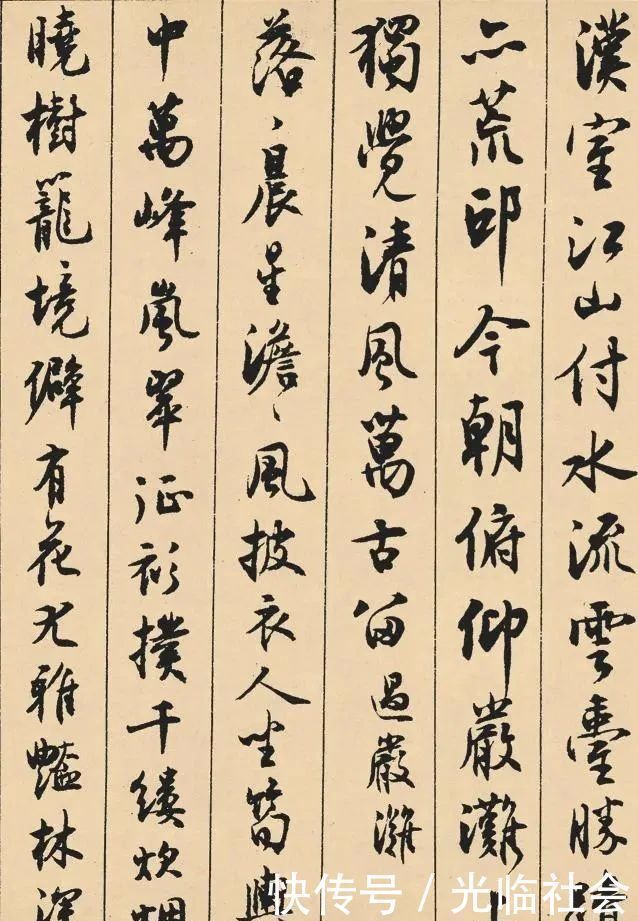 漢室江山付水流雲臺勝
亦荒邱今朝俯仰嚴灘
獨覺清風萬古留過嚴灘
落〻晨星澹〻風披衣人坐筍輿
中萬峰嵐翠征衫撲千縷炊烟
曉樹籠境僻有花尤雅豔林深
快传号 / 光临社会